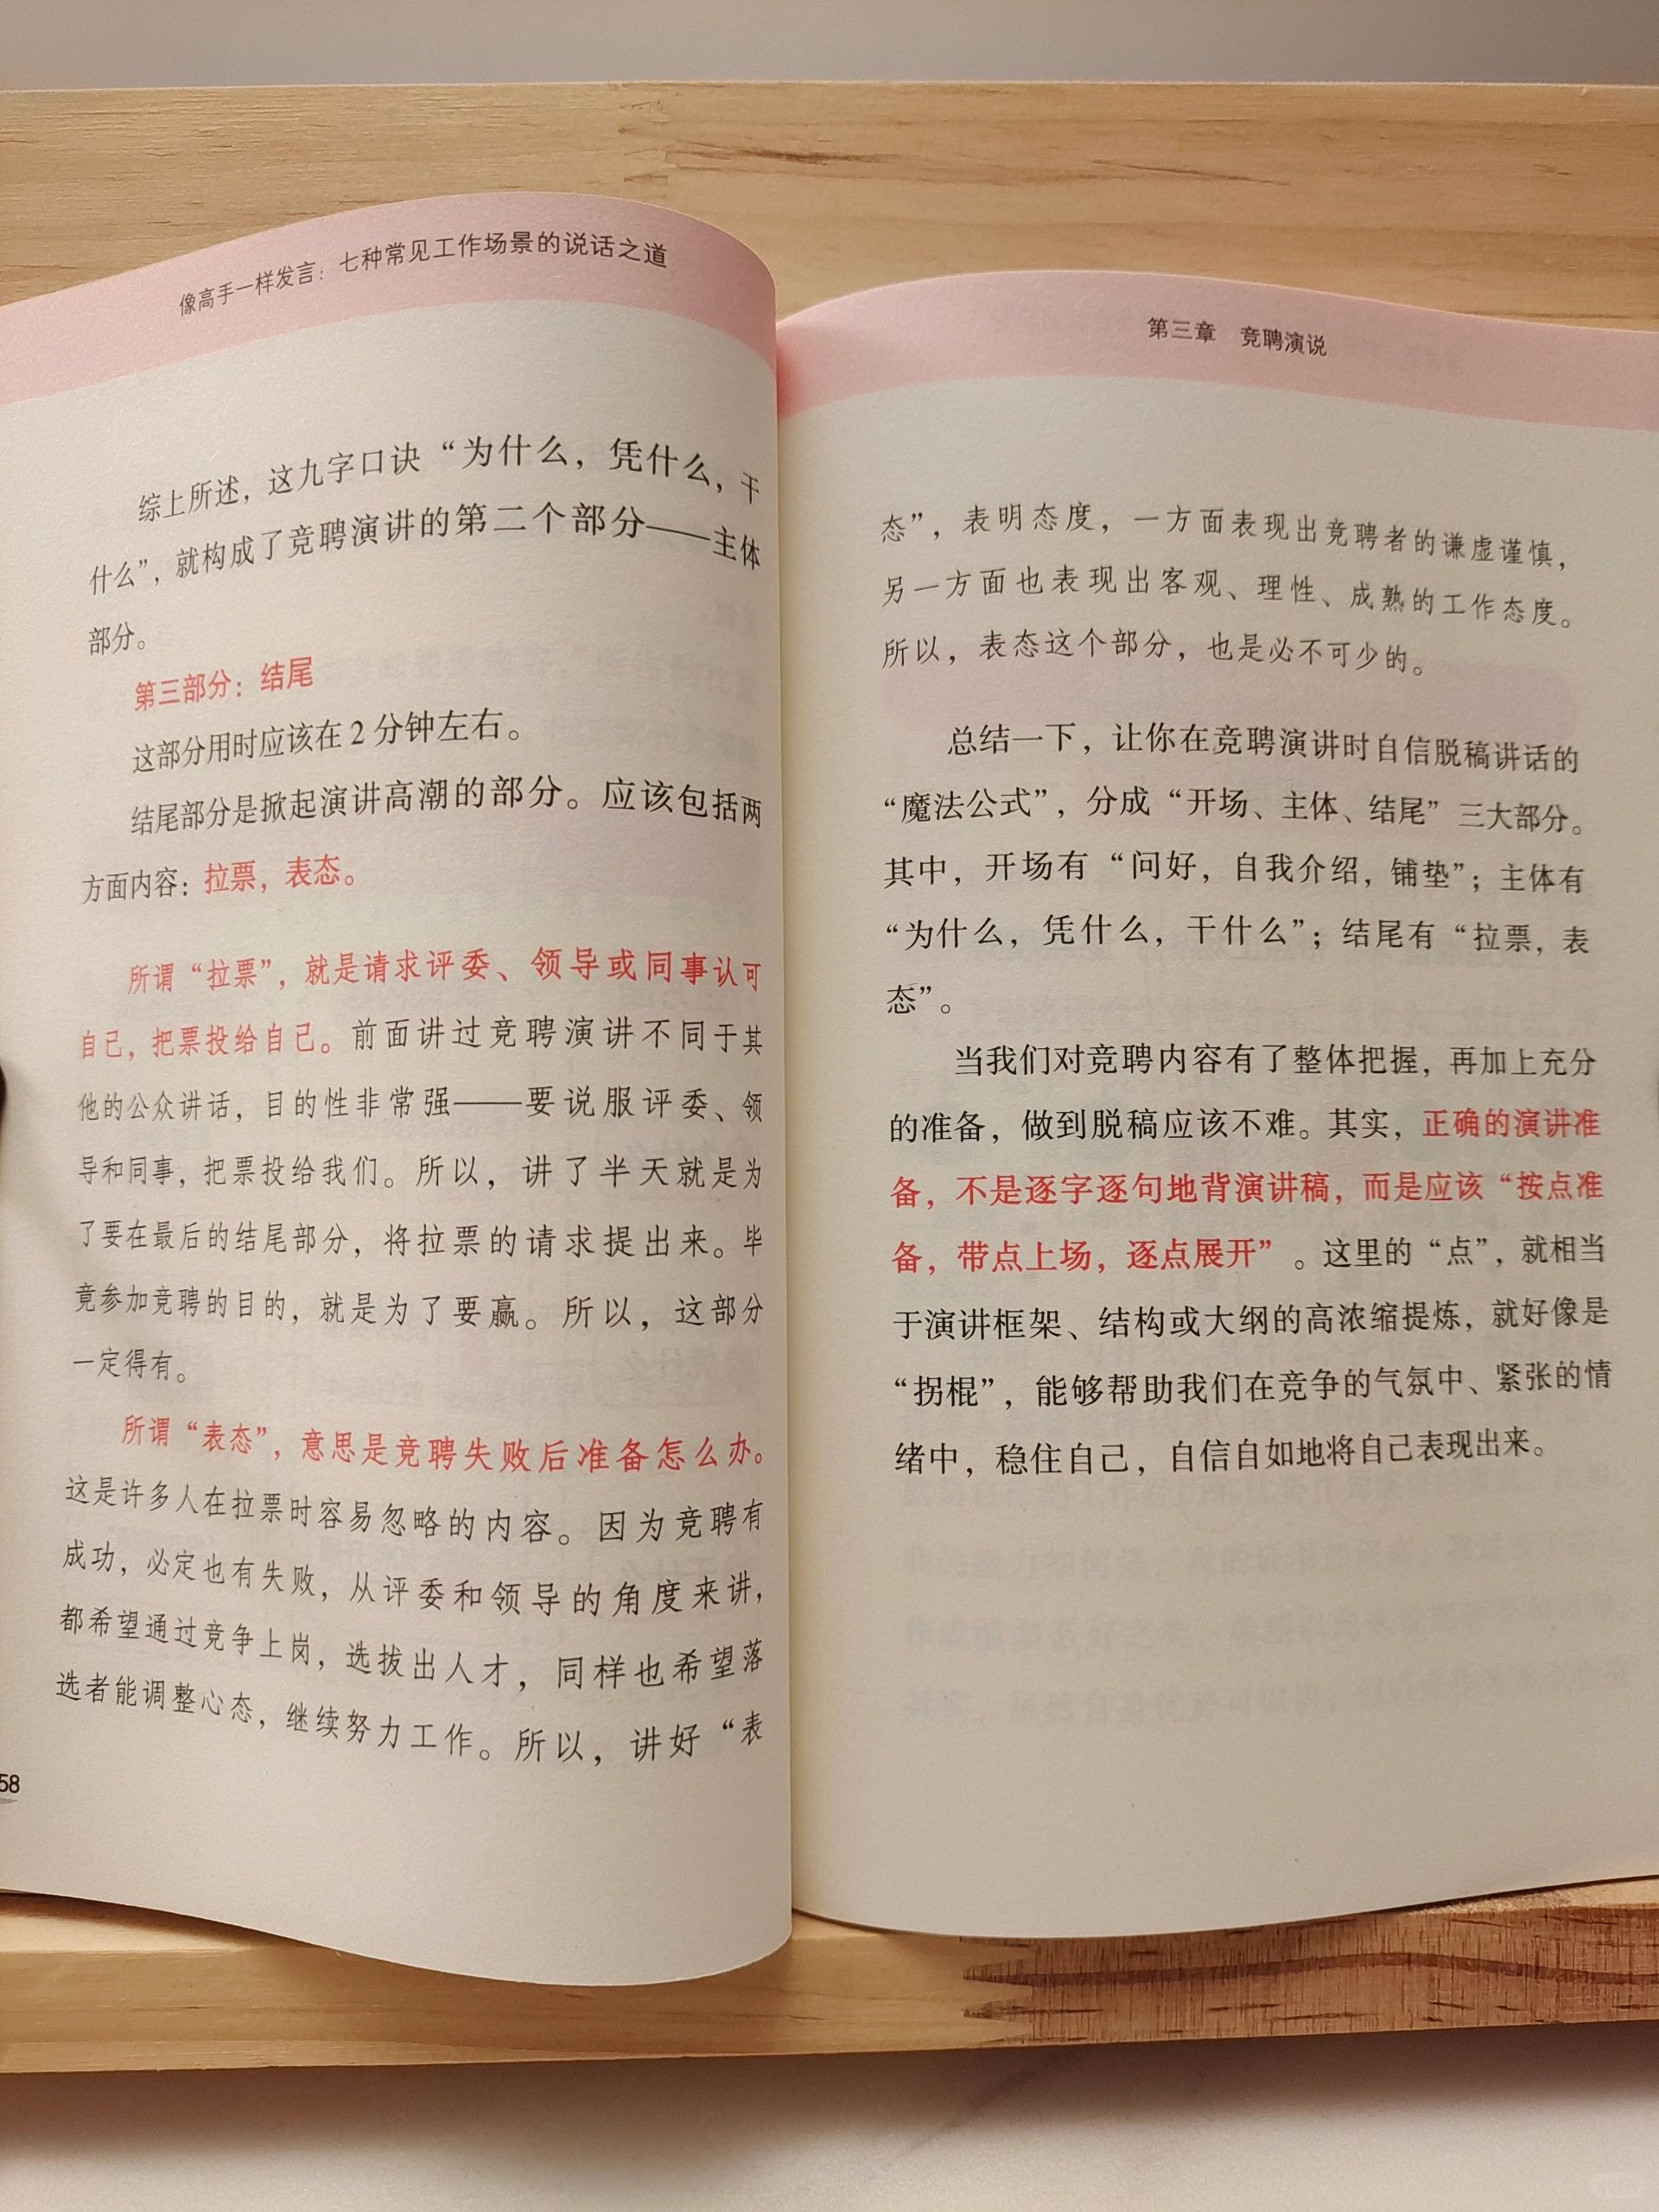 像高手一样发言：七种常见工作场景的说话之道
综上所述，这九字口诀“为什么，凭什么，干
什么”，就构成了竞聘演讲的第二个部分——主体
部分。
第三部分：结尾
这部分用时应该在2分钟左右。
结尾部分是掀起演讲高潮的部分。应该包括两
方面内容：拉票，表态。
所谓“拉票”，就是请求评委、领导或同事认可
自己，把票投给自己。前面讲过竞聘演讲不同于其
他的公众讲话，目的性非常强——要说服评委、领
导和同事，把票投给我们。所以，讲了半天就是为
了要在最后的结尾部分，将拉票的请求提出来。毕
竟参加竞聘的目的，就是为了要赢。所以，这部分
一定得有。
所谓“表态”，意思是竞聘失败后准备怎么办。
这是许多人在拉票时容易忽略的内容。因为竞聘有
成功，必定也有失败，从评委和领导的角度来讲，
都希望通过竞争上岗，选拔出人才，同样也希望落
选者能调整心态，继续努力工作。所以，讲好“表
58
第三章 竞聘演说
态”，表明态度，一方面表现出竞聘者的谦虚谨慎，
另一方面也表现出客观、理性、成熟的工作态度。
所以，表态这个部分，也是必不可少的。
总结一下，让你在竞聘演讲时自信脱稿讲话的
“魔法公式”，分成“开场、主体、结尾”三大部分。
其中，开场有“问好，自我介绍，铺垫”；主体有
“为什么，凭什么，干什么”；结尾有“拉票，表
态”。
当我们对竞聘内容有了整体把握，再加上充分
的准备，做到脱稿应该不难。其实，正确的演讲准
备，不是逐字逐句地背演讲稿，而是应该“按点准
备，带点上场，逐点展开”。这里的“点”，就相当
于演讲框架、结构或大纲的高浓缩提炼，就好像是
“拐棍”，能够帮助我们在竞争的气氛中、紧张的情
绪中，稳住自己，自信自如地将自己表现出来。